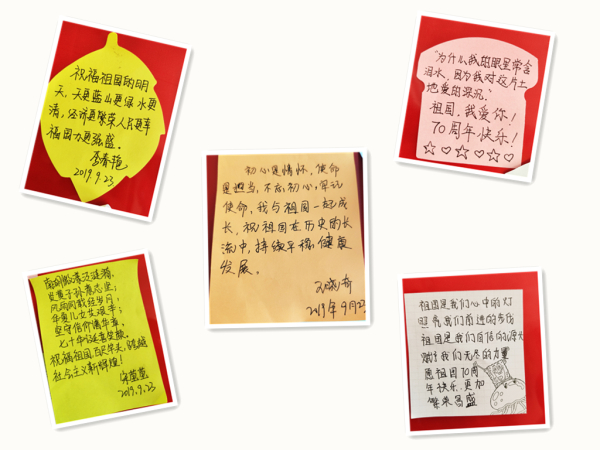 祝福祖国的明
天，天更蓝山更绿水更
清，经济更繁荣人民更幸
福国力更强盛。
李春艳
2019.9.23
"为什么我的眼里常含
泪水，因为我对这片土
地爱的深沉"
祖国，我爱你！
70周年快乐！
初心是情怀，使命
是担当，不忘初心，牢记
使命，我与祖国一起成
长，祝祖国在历史的长
流中，持续平稳，健康
发展。
2019年9月23
南湖
炎黄子孙
风雨同舟经岁月，
华夏儿女共艰辛；
坚守信仰谱华章，
七十华诞喜笑颜，
祝福祖国百尺竿头，铸就
社会主义新辉煌！
2019.9.23
祖国是我们心中的灯
照亮我们前进的步伐
祖国是我们自信的
赋予我们无尽的力量
愿祖国70周
年快乐 更加
繁荣昌盛